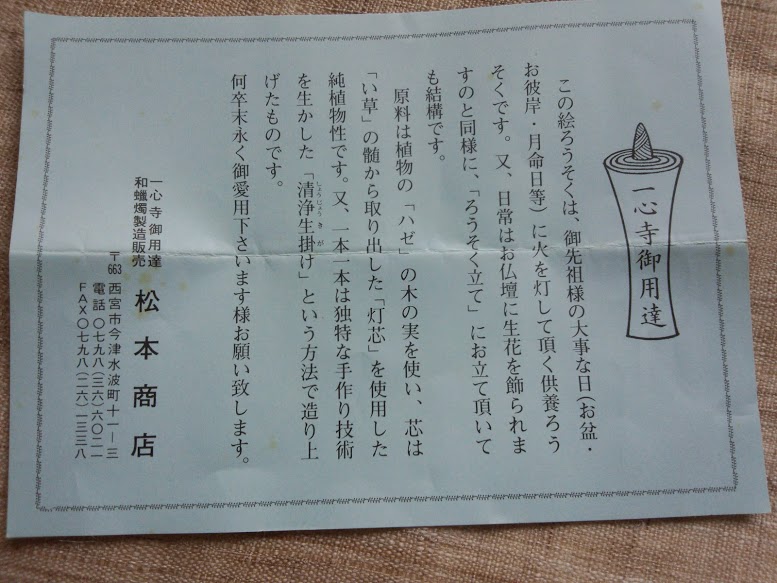 一心寺御用達
この絵ろうそくは、御先祖様の大事な日(お盆・
お彼岸・月命日等)に火を灯して頂く供養ろう
そくです。又、日常はお仏壇に生花を飾られま
すのと同様に、「ろうそく立て」にお立て頂いて
も結構です。
原料は植物の「ハゼ」の木の実を使い、芯は
「い草」の髄から取り出した「灯芯」を使用した
純植物性です。又、一本一本は独特な手作り技術
を生かした「清浄生掛け」という方法で造り上
しょうじょうきが
げたものです。
何卒末永く御愛用下さいます様お願い致します。
一心寺御用達
和蠟燭製造販売
松本商店
〒663 西宮市今津水波町十一―三
電話〇七九八(三六)六〇二一
FAX〇七九八(二六)一三三八